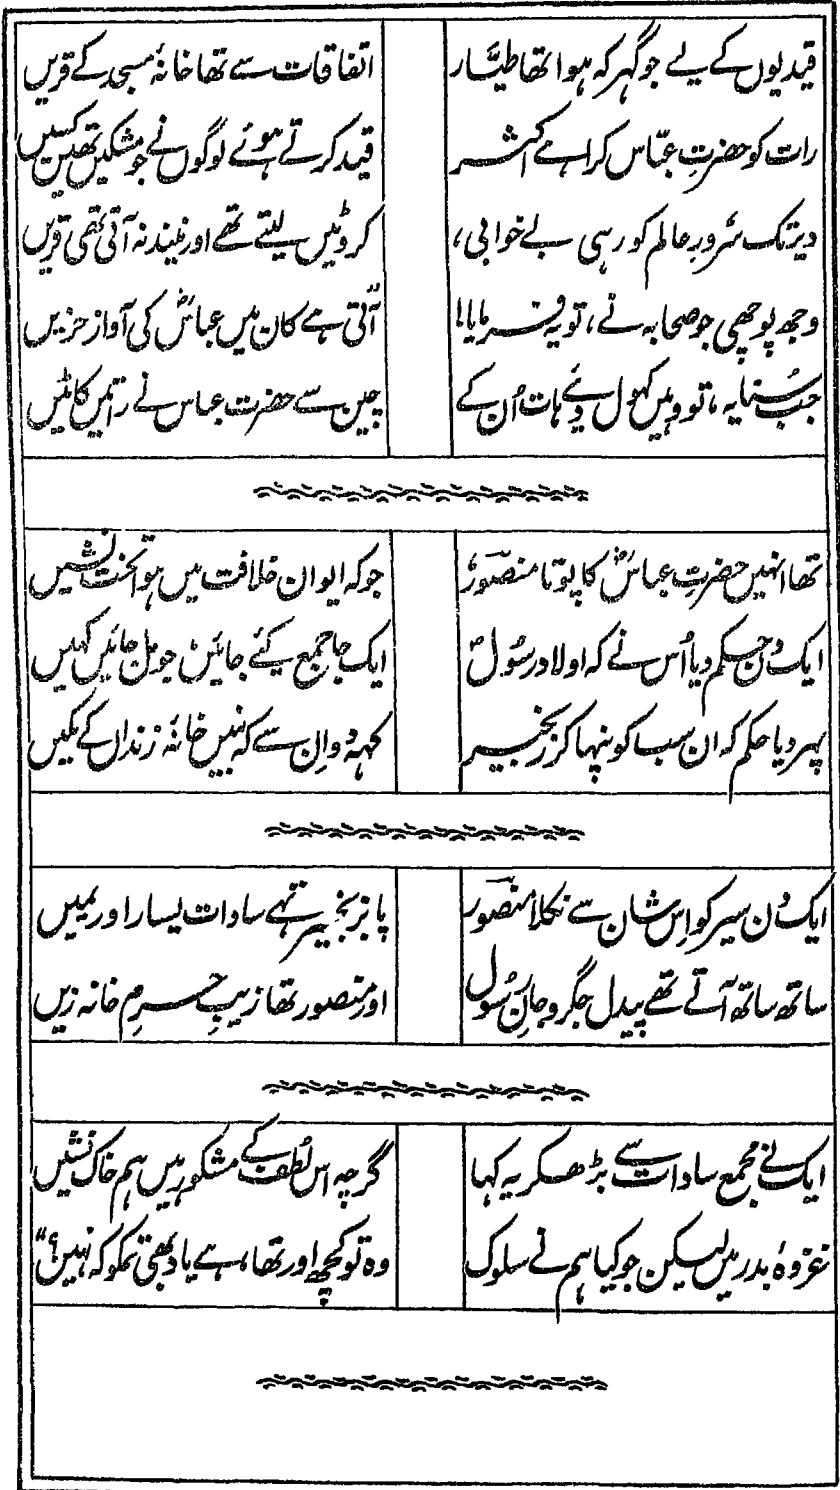 قیدیوں کے لیے جو گہر کہ ہوا تھا طیّار اتفاقات سے تھا خانۂ مسجد کے قریں
رات کو حضرتِ عبّاس کراہے اکثر قید کرتے ہوئے لوگوں نے جو مشکیں تھیں کسیں
دیر تک سُرورِ عالم کو رہی بے خوابی، کروٹیں لیتے تھے اور نیند نہ آتی تھی قریں
وجھ پوچھی جو صحابہ نے، تو یہ فرمایا! "آتی ہے کان میں عباسؓ کی آواز حزیں
جب سُنا یہ، تو وہیں کھول دئے ہات اُن کے چین سے حضرت عباس نے راتیں کاٹیں
تھا انہیں حضرتِ عباسؓ کا پوتا منصورؔ جو کہ ایوان خلافت میں ہوا تخت نشیں
ایک دن حکم دیا اُس نے کہ اولاد رسُولؐ ایک جا جمع کئے جائیں جو مل جائیں کہیں
پہر دیا حکم کہ ان سب کو پنہا کر زنجیر کہہ دو اِن سے کہ بنیں خانۂ زنداں کے مکیں
ایک دن سیر کو اِس شان سے نکلا منصور پا بزنجیر تہے سادات یسار اور یمیں
ساتھ ساتھ آتے تھے پیدل جگر و جانِ رسُول اور منصور تھا زیبِ حرمِ خانہ زیں
ایک نے مجمع سادات سے بڑھکر یہ کہا گرچہ اس لُطف کے مشکور ہیں ہم خاک نشیں
غزوۂ بدر میں لیکن جو کیا ہم نے سلوک وہ تو کچھ اور تھا، ہے یاد بھی تمکو کہ نہیں؟"